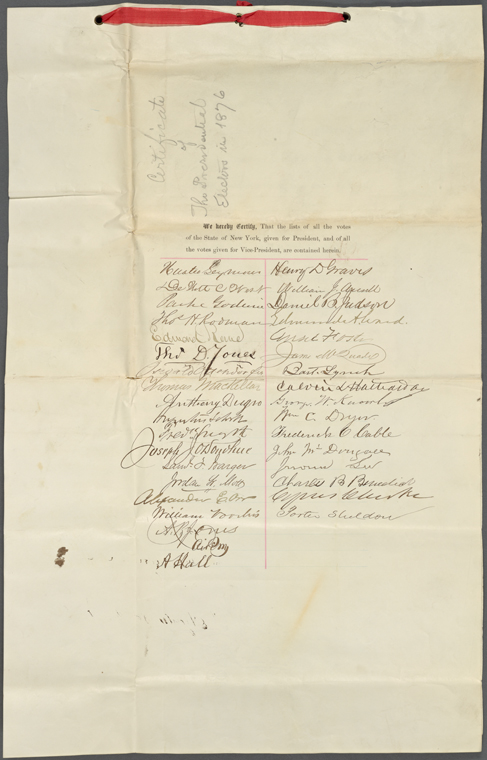 Certificate
of
The Presidential
Electors in 1876
We hereby Certify, That the lists of all the votes
of the State of New York, given for President, and of all
the votes given for Vice-President, are contained herein.
Horatio Seymour
De Witt C West
Parke Godwin
Thos H Rodman
Edward
Tho. D. Jones
Thomas
Anthony Dugro
Augustus Schell
Fredk Smyth
Joseph J O'Donohue
Saml F. Barger
Jordan L. Mott
Alexander E. Orr
William Voorhis
A. B. Jones
A Hall
Henry D Graves
William J. Averell
Daniel B. Judson
Edmund A. Ward.
Ansel Foote
James M
Bart. Lynch
Calvin L Hathaway
George W. Knowles
Wm C. Dryer
Frederick O Cable
John McDougall
Jerome Lee
Charles B Benedict
Cyrus Clarke
Porter Sheldon